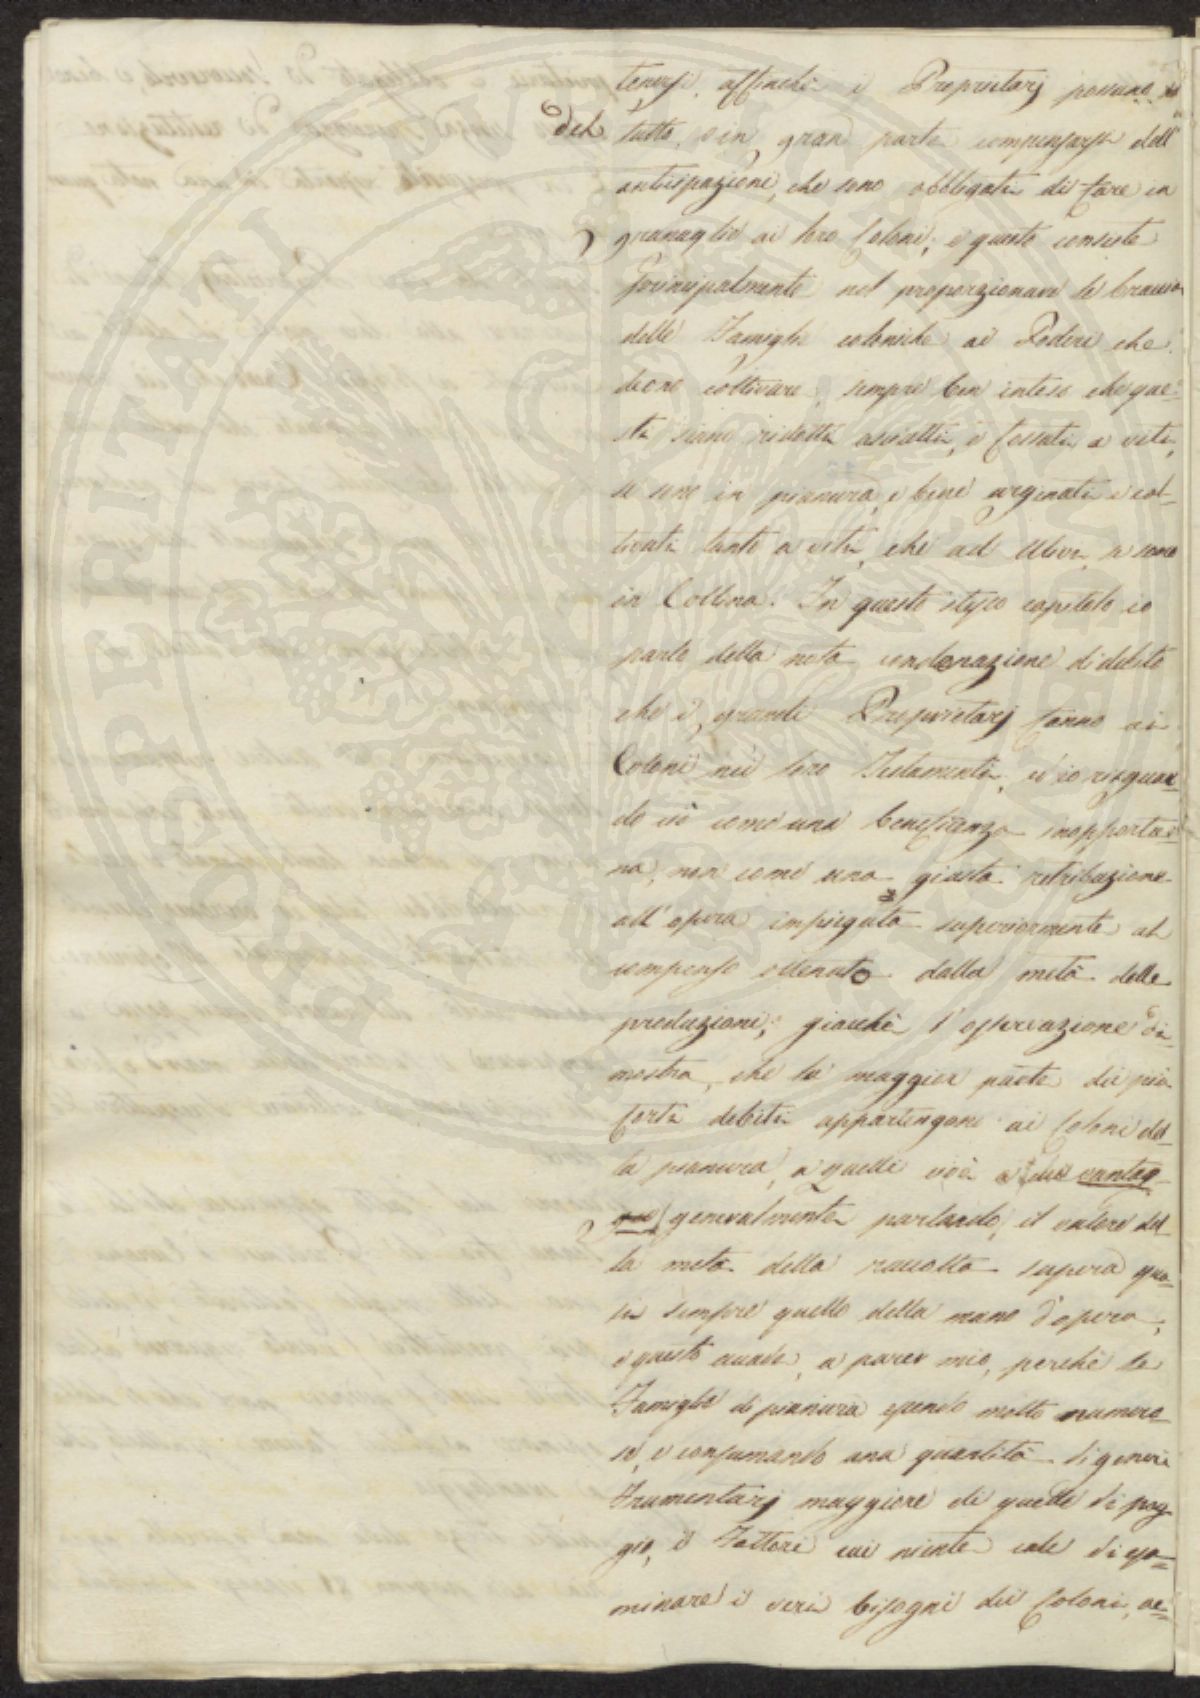 tenersi, affinchè i Proprietarj possano
del tutto, o in gran parte compensarsi dell'
anticipazione, che sono obbligati di fare in
granaglie ai loro Coloni; e questo consiste
principalmente nel proporzionare le braccia
delle Famiglie coloniche ai Poderi che
deono coltivare, sempre ben inteso che que=
sti siano ridotti asciutti, e fossati a viti,
se sono in pianura, e bene arginati e col=
tivati tanto a viti, che ad Ulivi, se sono
in Collina. In questo stesso capitolo io
parlo della nota condonazione di debito
che i grandi Proprietarj fanno ai
Coloni nei loro Testamenti, ed io risguar=
do ciò come una beneficenza inopportu=
na, non come una giusta retribuzione
all'opera impiegata superiormente al
compenso ottenuto dalla metà delle
produzioni; giacchè l'osservazione di=
mostra, che la maggior parte dei più
forti debiti appartengono ai Coloni del=
la pianura, a quelli cioè a cui
generalmente parlando, il valore del=
la metà della raccolta supera qua=
si sempre quello della mano d'opera;
e questo accade, a parer mio, perchè le
Famiglie di pianura essendo molto numero=
se, e consumando una quantità di generi
Frumentarj maggiore di quelle di pog=
gio, i Fattori cui niente cale di esa=
minare i veri bisogni dei Coloni, ac=
PROSPERITATI PVBLICAE AVGENDAE